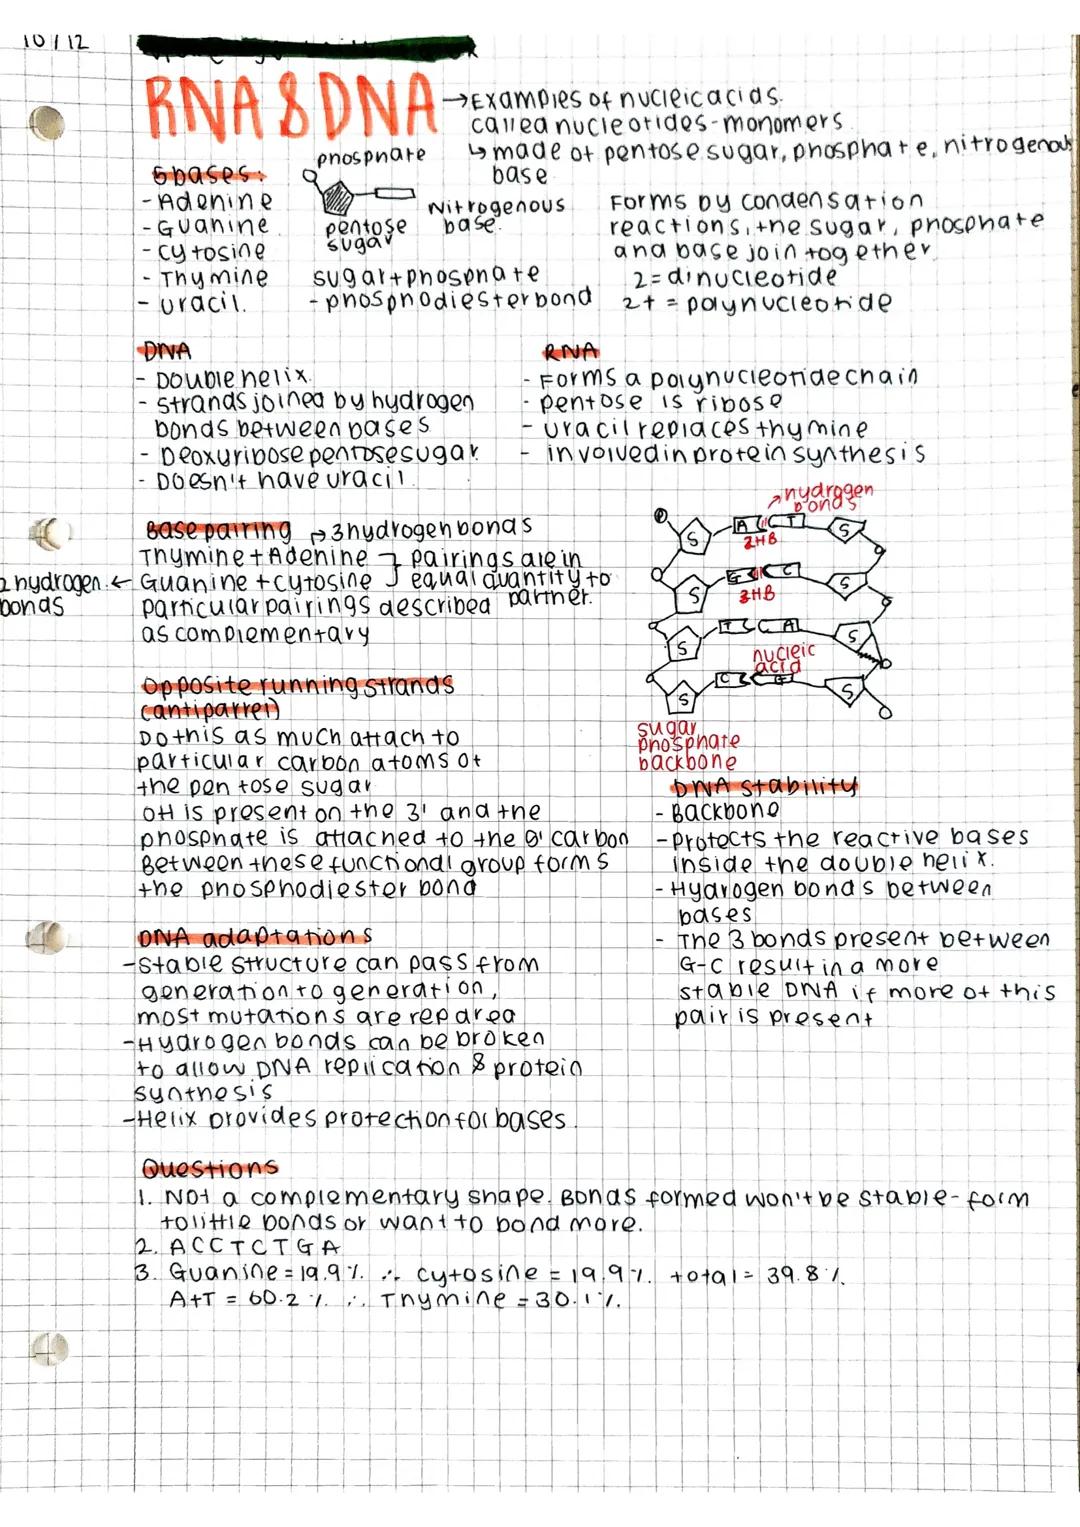 10/12
RNA & DNA → Examples of nucleic acids.
called nucleotides - monomers
↳ made of pentose sugar, phosphate, nitrogenous
base
5 bases:
- Adenine
- Guanine
- cytosine
- Thymine
- uracil.
phosphate
Nitrogenous
base.
pentose
sugar
sugar + phosphate
- phosphodiester bond
Forms by condensation
reactions, the sugar, phosphate
and base join together
2 = dinucleotide
2+ = polynucleotide
DNA
- Double helix.
- strands joined by hydrogen
bonds between bases
- Deoxyribose pentose sugar.
- Doesn't have uracil.
RNA
- Forms a polynucleotide chain
- pentose is ribose
- uracil replaces thymine
- involved in protein synthesis
Base pairing → 3 hydrogen bonds
Thymine + Adenine } pairings are in
2 hydrogen ← Guanine + cytosine } equal quantity to
bonds
particular pairings described partner.
as complementary
hydrogen
bonds
P
S A T S
2HB
S G C S
3HB
S T A S
nucleic
acid
S C G S
sugar
phosphate
backbone
Opposite running strands
(antiparrel)
Do this as much attach to
particular carbon atoms of
the pentose sugar
OH is present on the 3' and the
phosphate is attached to the 5' carbon
Between these functional group forms
the phosphodiester bond
DNA stability
- Backbone
- Protects the reactive bases
inside the double helix.
- Hydrogen bonds between
bases
- The 3 bonds present between
G-C result in a more
stable DNA if more of this
pair is present
DNA adaptations
- Stable structure can pass from
generation to generation,
most mutations are repared
- Hydrogen bonds can be broken
to allow DNA replication & protein
synthesis
- Helix provides protection for bases.
Questions
1. Not a complementary shape. Bonds formed won't be stable - form
to little bonds or want to bond more.
2. ACCTCTGA
3. Guanine = 19.9%. ∴ cytosine = 19.9%. total = 39.8%.
A+T = 60.2%. ∴ Thymine = 30.1%.